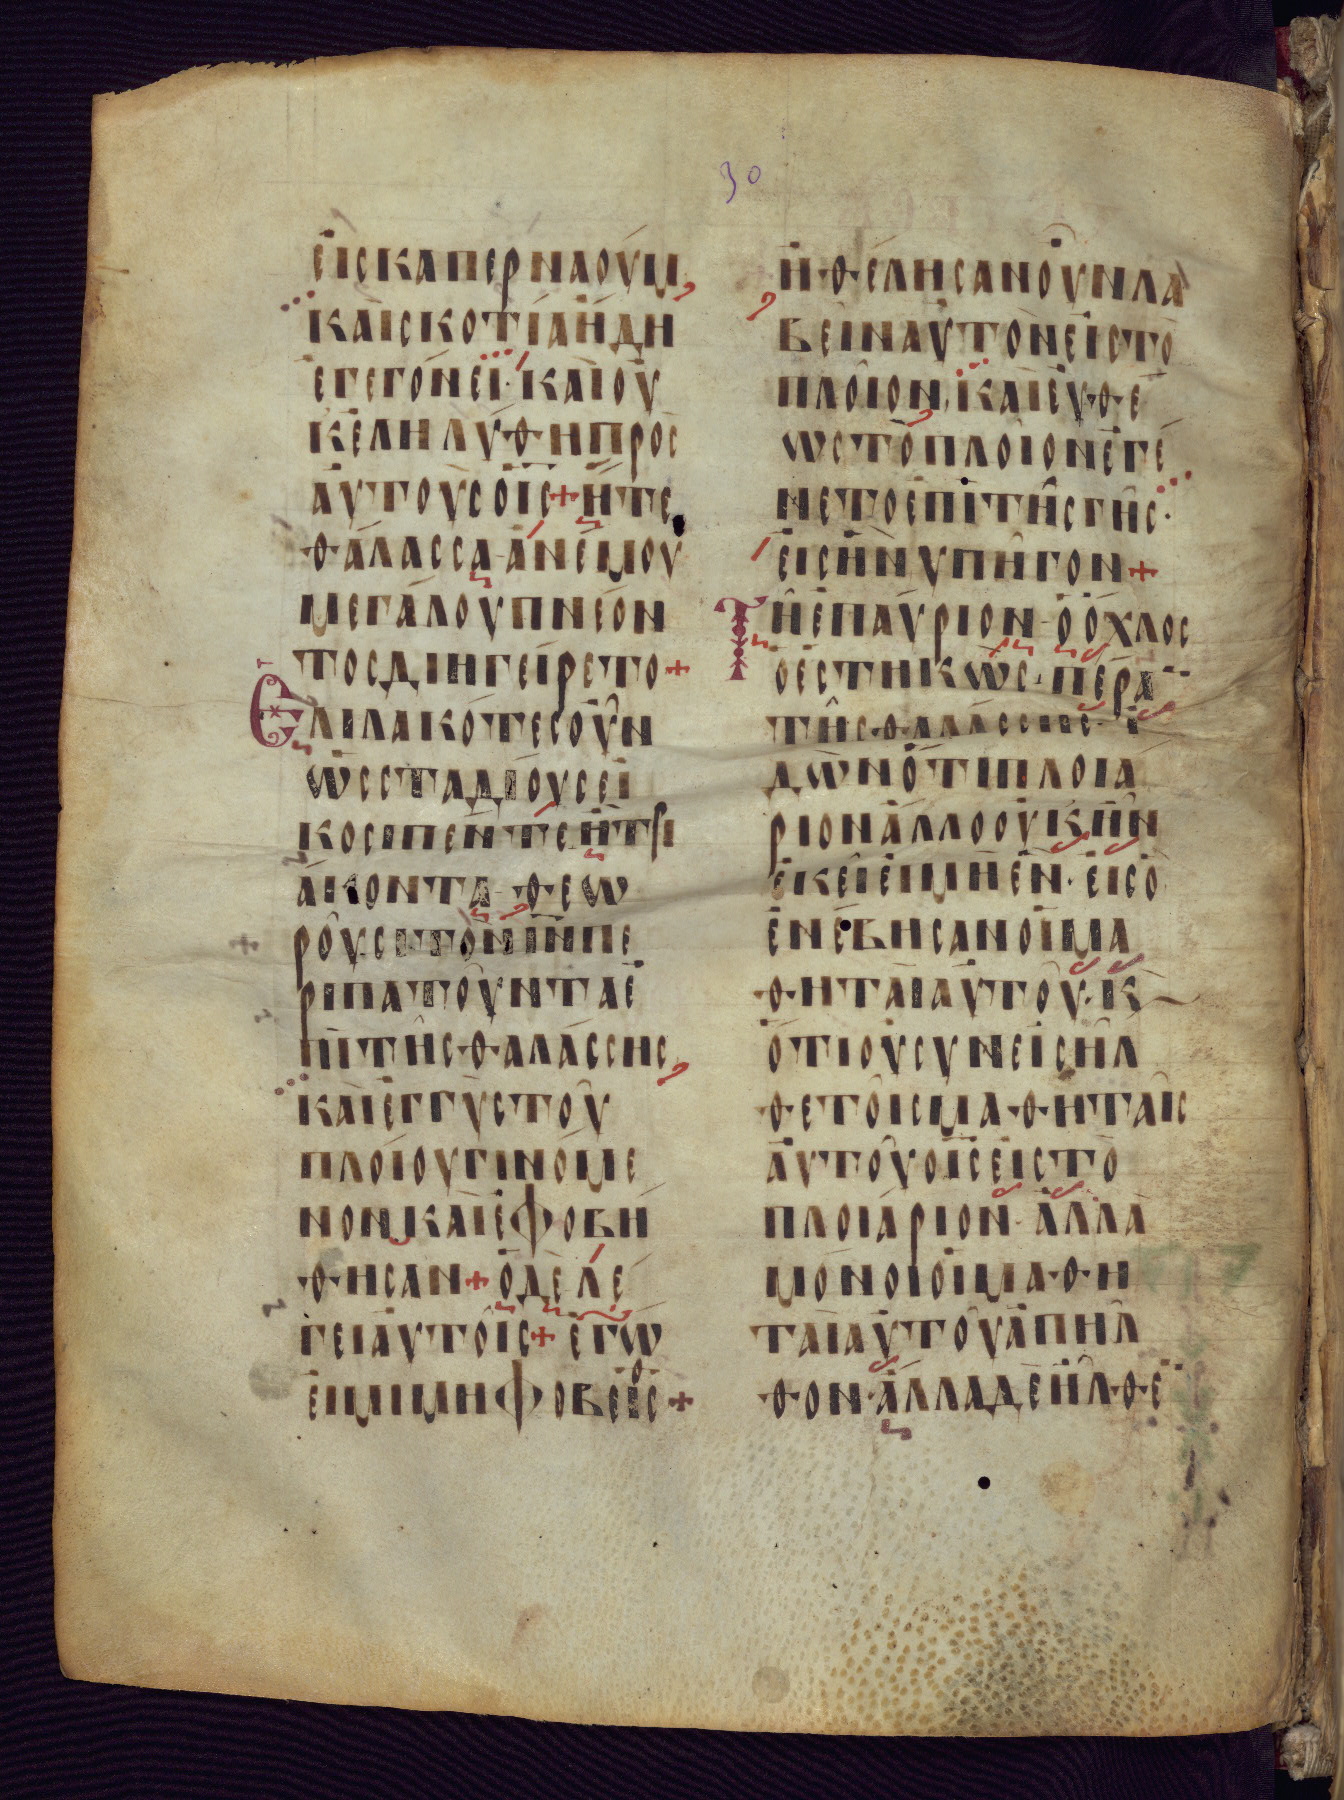 30
εἰς καπερναούμ,
καὶ σκοτία ἤδη
ἐγεγόνει· καὶ οὐ
κ ἐληλύθη πρὸς
αὐτοὺς ὁ ι̅ς̅ + ἥ τε
θάλασσα ἀνέμου
μεγάλου πνέον
τος διηγείρετο +
Ἐλιλακότες οὖν
ὡς σταδίους εἰ
κοσιπέντε ἢ τρι
άκοντα· θεω
ροῦσι τὸν ι̅ν̅ πε
ριπατοῦντα ἐ
πὶ τῆς θαλάσσης,
καὶ ἐγγὺς τοῦ
πλοίου γινόμε
νον, καὶ ἐφοβή
θησαν + ὁ δὲ λέ
γει αὐτοῖς + ἐγώ
εἰμι μὴ φοβεῖσθ +
ἤθελησαν οὖν λα
βεῖν αὐτὸν εἰς τὸ
πλοῖον, καὶ εὐθέ
ως τὸ πλοῖον ἐγέ
νετο ἐπὶ τῆς γῆς·
εἰς ἣν ὑπῆγον +
Τῇ ἐπαύριον ὁ ὄχλος
ὁ ἑστηκὼς· πέρα
τῆς θαλάσσης· ἰ
δὼν ὅτι πλοιά
ριον ἄλλο οὐκ ἦν
ἐκεῖ εἰ μὴ ἕν· εἰς ὃ
ἐνέβησαν οἱ μα
θηταὶ αὐτοῦ· κ
ὅτι οὐ συνεισῆλ
θε τοῖς μαθηταῖς
αὐτοῦ ὁ ι̅ς̅ εἰς τὸ
πλοιάριον· ἀλλὰ
μόνοι οἱ μαθη
ταὶ αὐτοῦ ἀπῆλ
θον· ἄλλα δὲ ἦλθε